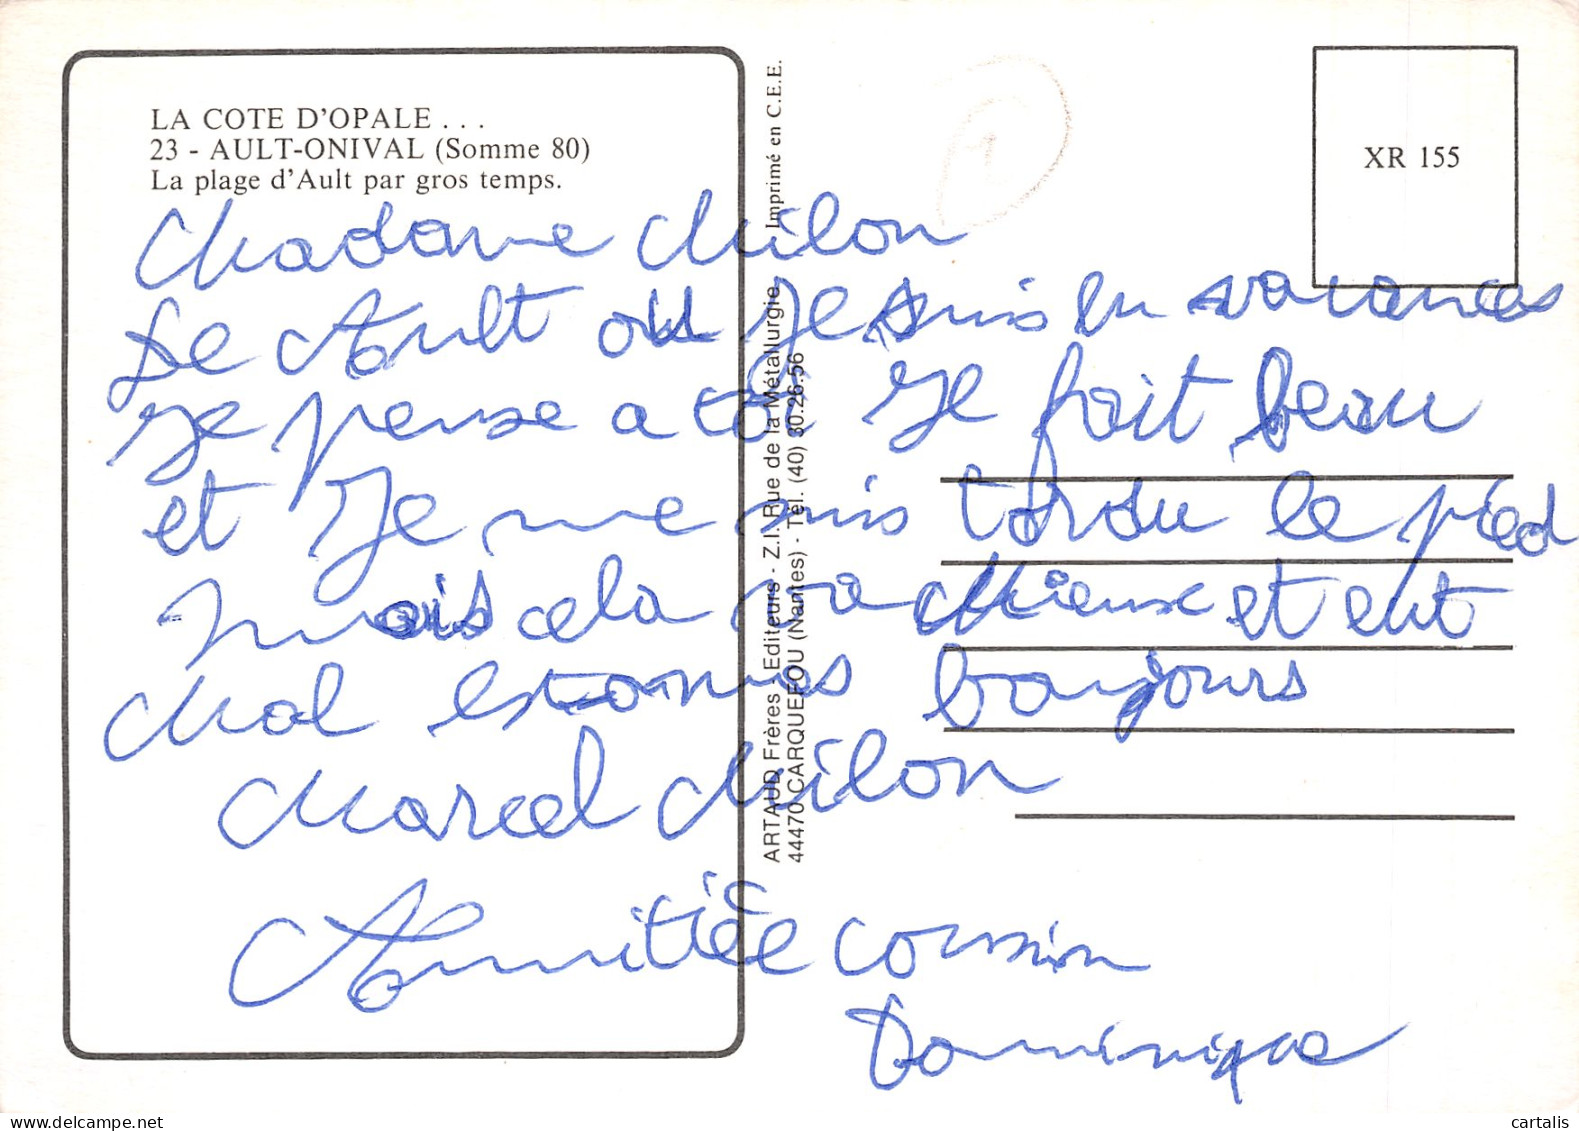 LA COTE D'OPALE . . .
23 - AULT-ONIVAL (Somme 80)
La plage d'Ault par gros temps.
XR 155
ARTAUD Frères - Editeurs - Z.I. Rue de la Métallurgie Imprimé en C.E.E.
44470 CARQUEFOU (Nantes) - Tél. (40) 30.26.56
Madame Milon
De Ault ou Je suis en vacances
Je pense a toi Je fait beau
et Je me suis tordu le pied
mais cela va Mieux et eut
Mal estomas bonjours
Marcel Milon
Amitiée coussin
Dominique
cartalis